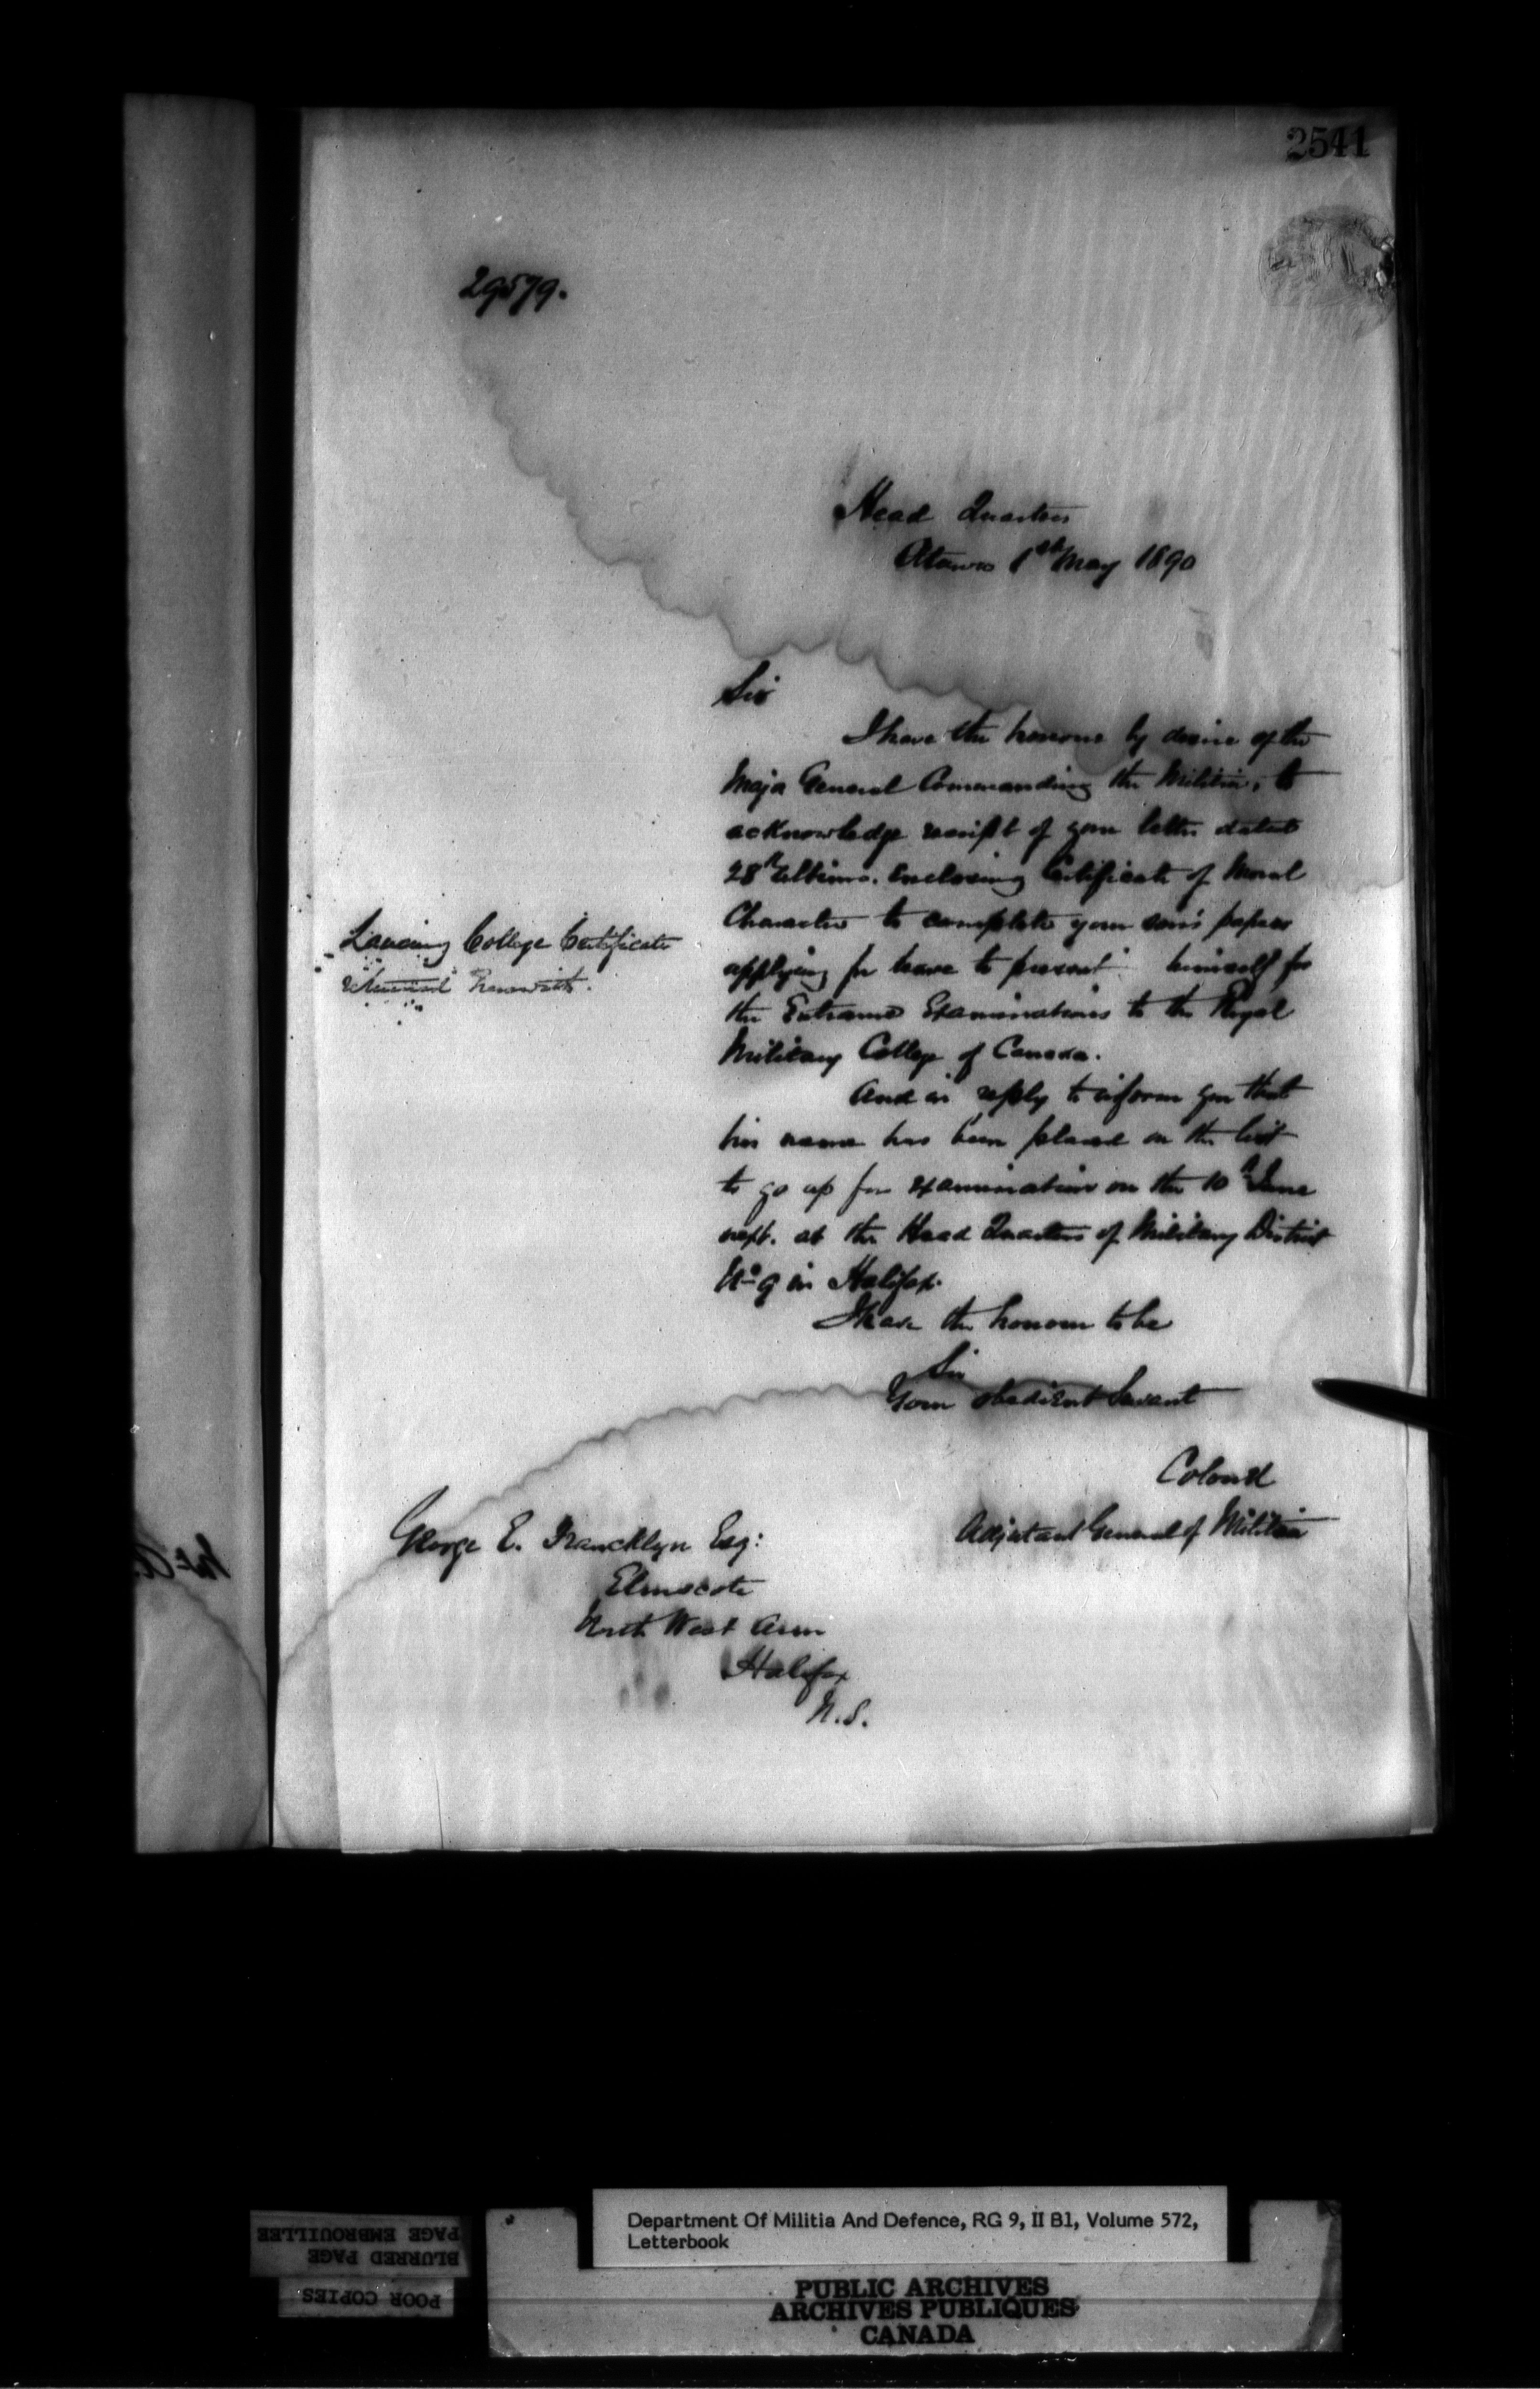 2541
29579.
Head Quarters
Ottawa 1st May 1890
Sir
I have the honour by desire of the
Major General Commanding the Militia, to
acknowledge receipt of your letter dated
28th Ultimo. Enclosing Certificate of Moral
Character to complete your son's papers
applying for leave to present himself for
the Entrance Examinations to the Royal
Military College of Canada.
Lancing College Certificate
returned herewith.
And in reply to inform you that
his name has been placed on the list
to go up for examination on the 10th June
next. at the Head Quarters of Military District
No 9 in Halifax.
I have the honour to be
Sir
Your obedient Servant
Colonel
Adjutant General of Militia
George E. Francklyn Esq:
Elmscote
North West Arm
Halifax
N.S.
PAGE EMBROUILLEE
BLURRED PAGE
POOR COPIES
Department Of Militia And Defence, RG 9, II B1, Volume 572,
Letterbook
PUBLIC ARCHIVES
ARCHIVES PUBLIQUES
CANADA